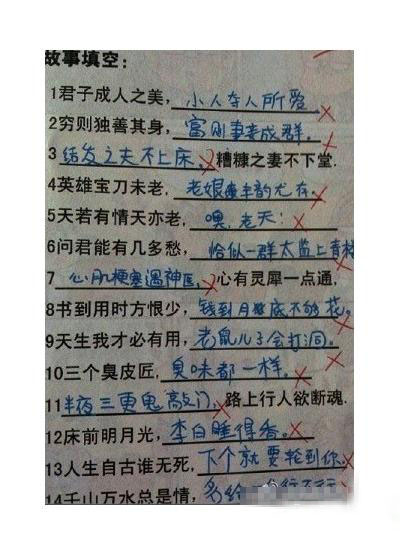 故事填空:
1君子成人之美,小人夺人所爱。
2穷则独善其身,富则妻妾成群。
3结发之夫不上床,糟糠之妻不下堂.
4英雄宝刀未老,老娘丰韵尤存。
5天若有情天亦老,噢,老天!
6问君能有几多愁,恰似一群太监上青楼
7心肌梗塞遇神医,心有灵犀一点通,
8书到用时方恨少,钱到月底不够花。
9天生我才必有用,老鼠儿子会打洞。
10三个臭皮匠,臭味都一样。
11半夜三更鬼敲门,路上行人欲断魂.
12床前明月光,李白睡得香。
13人生自古谁无死,下个就要轮到你。
14千山万水总是情,多给一点行不行